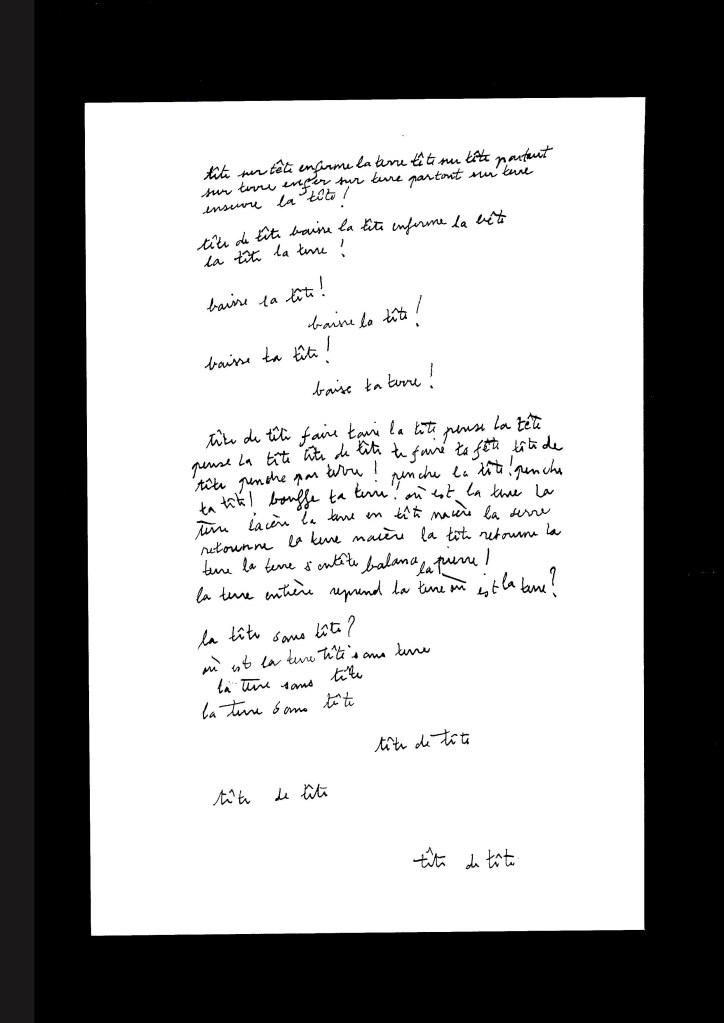 tête sur tête enferme la terre tête sur tête partout
sur terre enfer sur terre partout sur terre
ensuivre la tête !
tête de tête baisse la tête enferme la bête
la tête la terre !
baisse ta tête !
baisse la tête !
baisse ta tête !
baise ta terre !
tête de tête faire taire la tête pense la tête
pense la tête tête de tête te faire ta fête tête de
tête penche par terre ! penche la tête ! penche
ta tête ! bouffe ta terre ! où est la terre la
terre lacère la terre en tête macère la serre
retourne la terre macère la tête retourne la
terre la terre s'entête balance la pierre !
la terre entière reprend la terre où est la terre ?
la tête sans tête ?
où est la terre tête sans terre
la terre sans tête
la terre sans tête
tête de tête
tête de tête
tête de tête